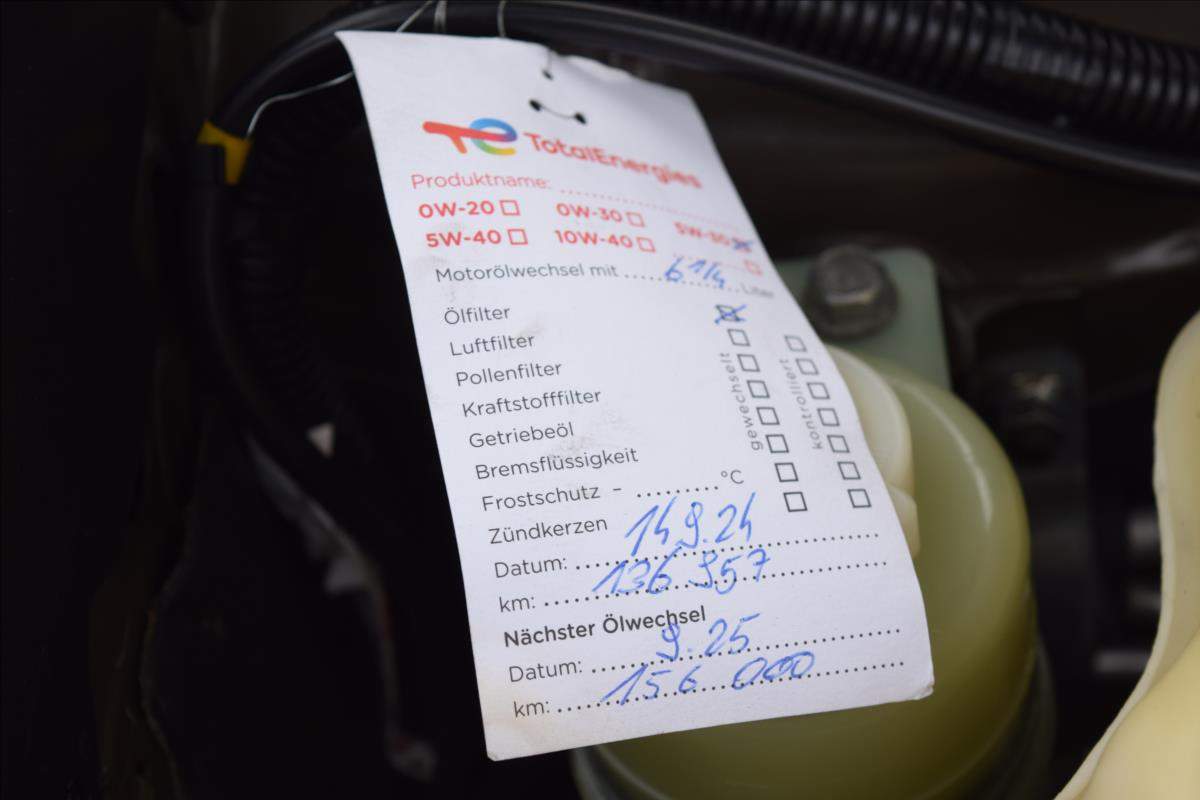 TotalEnergies
Produktname:
0W-20 0W-30 5W-30
5W-40 10W-40
Motorölwechsel mit 6 1/4 Liter
Ölfilter
Luftfilter
Pollenfilter
Kraftstofffilter
Getriebeöl
Bremsflüssigkeit
Frostschutz - ......... °C
Zündkerzen
gewechselt
kontrolliert
Datum: 14 9.24
km: 136 957
Nächster Ölwechsel
Datum: 9.25
km: 156 000